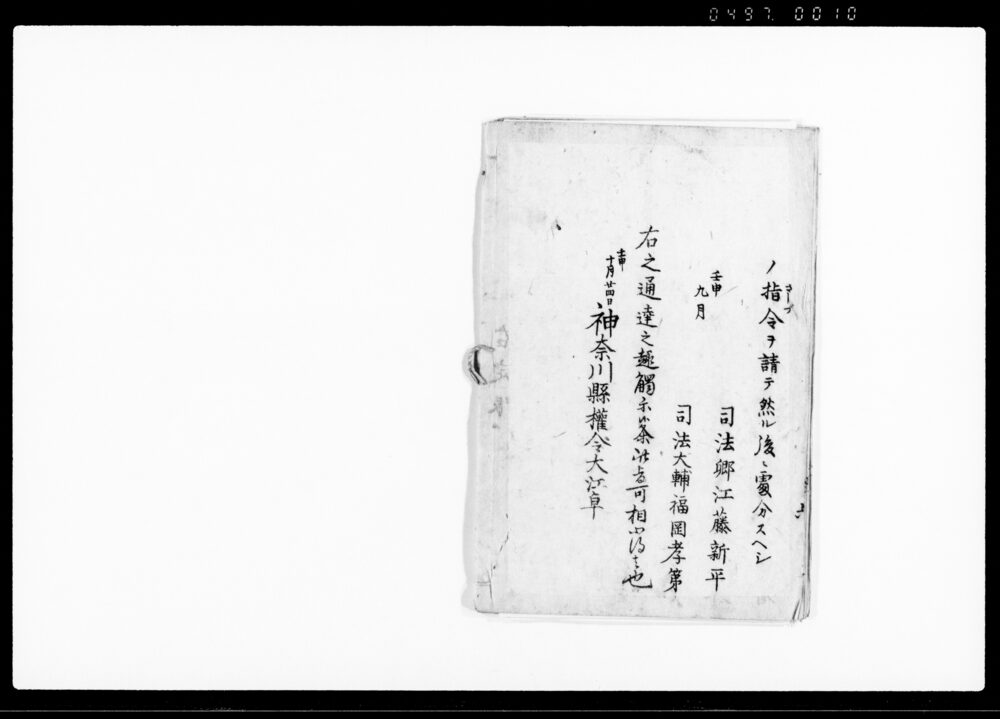 0497. 0010
ノ指令ヲ請テ然ル後ニ處分スヘシ
サシヅ
壬申
九月
司法卿江藤新平
司法大輔福岡孝弟
右之通達之趣觸示候条此旨可相心得もの也
壬申
十月廿四日
神奈川縣權令大江卓